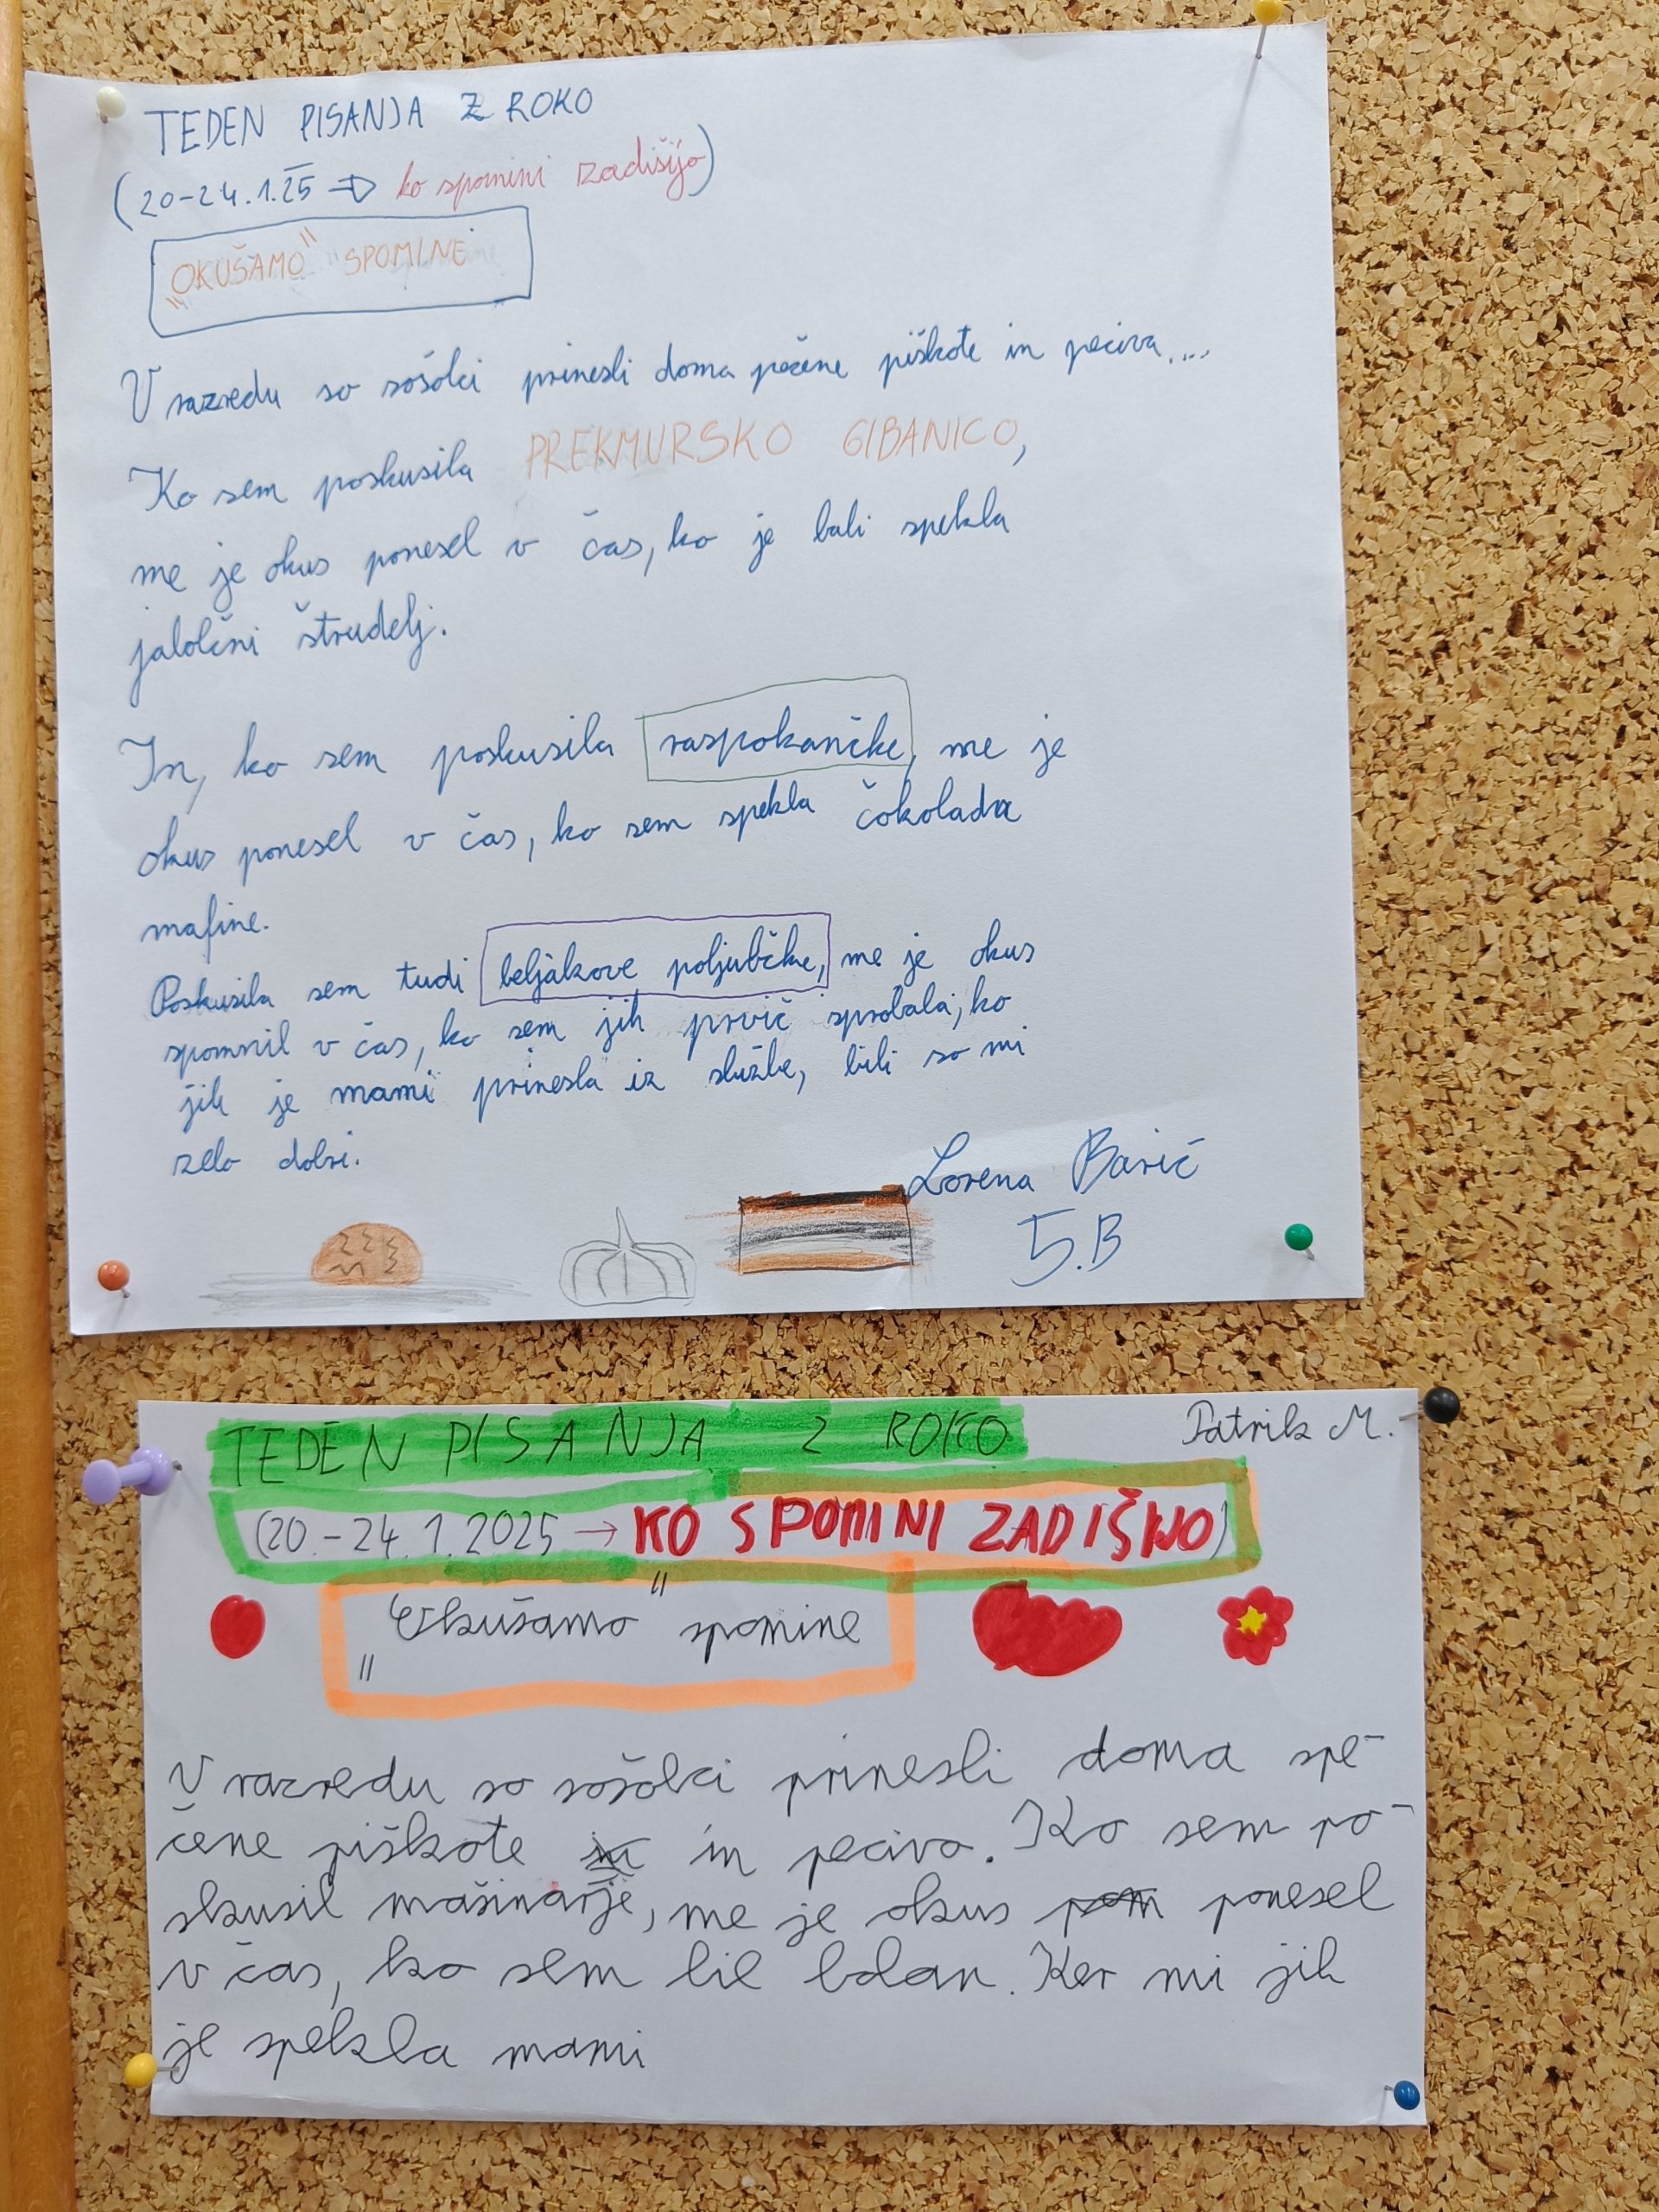 TEDEN PISANJA Z ROKO
(20-24.1.25 → ko spomini zadišijo)
"OKUŠAMO" SPOMINE
V razredu so sošolci prinesli doma pečene piškote in peciva....
Ko sem poskusila PREKMURSKO GIBANICO,
me je okus ponesel v čas, ko je babi spekla
jabolčni štrudelj.
In, ko sem poskusila raspokančke, me je
okus ponesel v čas, ko sem spekla čokolada
mafine.
Poskusila sem tudi beljakove poljubčke, me je okus
spomnil v čas, ko sem jih prvič sprobala, ko
jih je mami prinesla iz službe, bili so mi
zelo dobri.
Lorena Barić
5.B
TEDEN PISANJA Z ROKO
Patrik M.
(20.-24.1.2025 → KO SPOMINI ZADIŠIJO)
"Okušamo" spomine
V razredu so sošolci prinesli doma spe-
čene piškote in peciva. Ko sem po-
skusil mašinarje, me je okus ponesel
v čas, ko sem bil bolan. Ker mi jih
je spekla mami